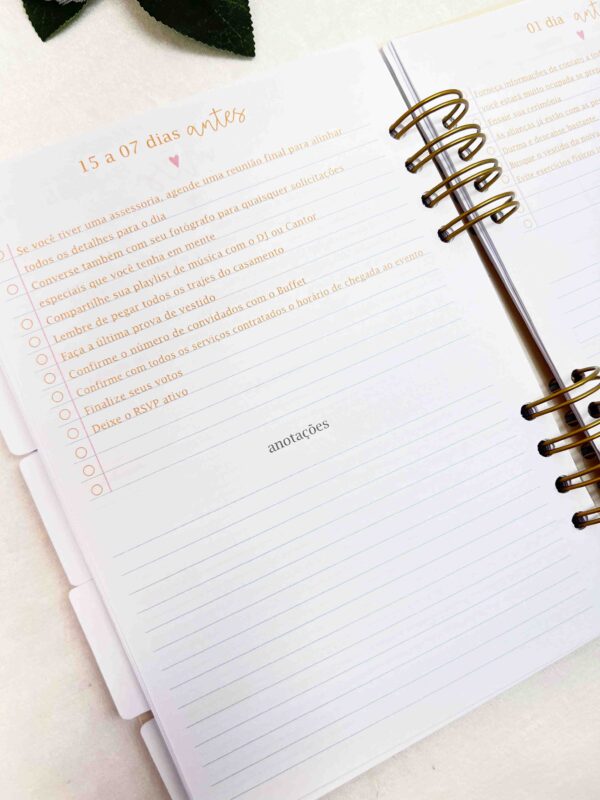 15 a 07 dias antes
Se você tiver uma assessoria, agende uma reunião final para alinhar
todos os detalhes para o dia
Converse também com seu fotógrafo para quaisquer solicitações
especiais que você tenha em mente
Compartilhe sua playlist de música com o DJ ou Cantor
Lembre de pegar todos os trajes do casamento
Faça a última prova de vestido
Confirme o número de convidados com o Buffet
Confirme com todos os serviços contratados o horário de chegada ao evento
Finalize seus votos
Deixe o RSVP ativo
anotações
01 dia antes
Forneça informações de contato a
você estará muito ocupada se
Ensaie sua cerimônia
As alianças já estão com as
Durma e descanse bastante
Busque o vestido da noiva
Evite exercícios físicos